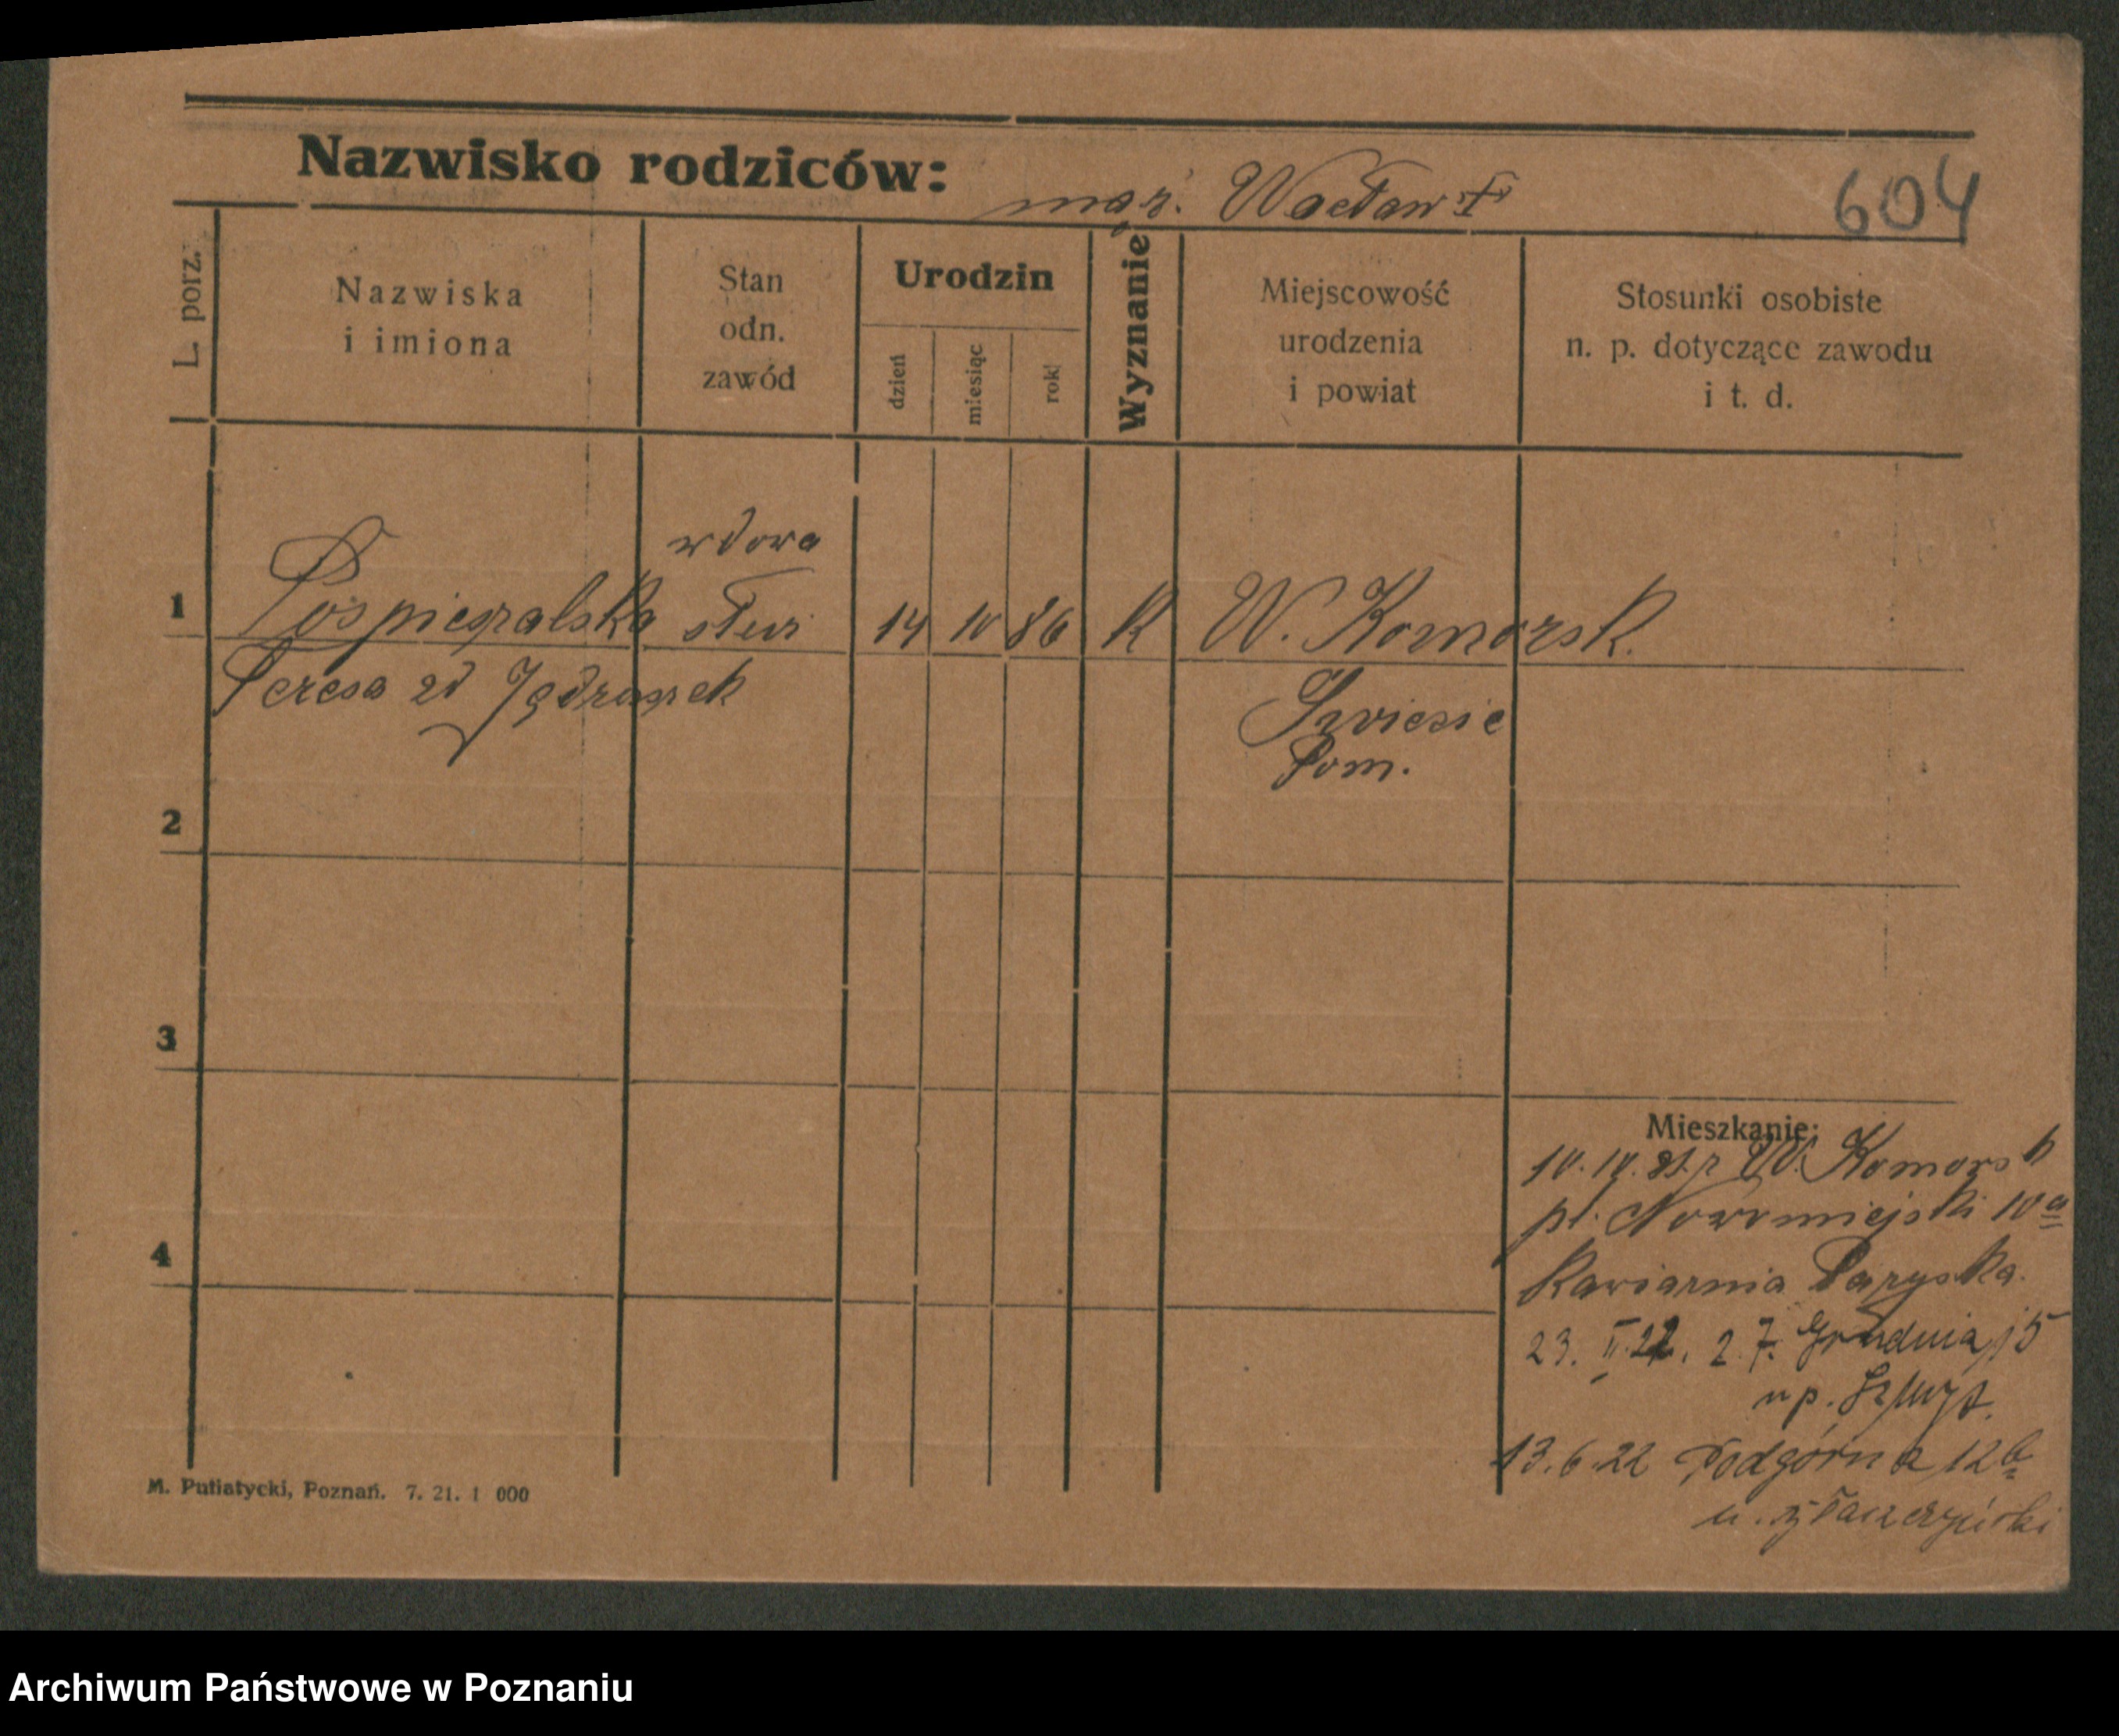 Nazwisko rodziców: mąż. Wacław †
604
L. porz.
Nazwiska
i imiona
Stan
odn.
zawód
Urodzin
dzień
miesiąc
rok
Wyznanie
Miejscowość
urodzenia
i powiat
Stosunki osobiste
n. p. dotyczące zawodu
i t. d.
wdowa
1 Pośpieszalska służ 14 10 86 K W. Komorsk.
Teresa zd Jądraszek
Świecie
Pom.
2
3
4
Mieszkanie:
10.10.21. z W. Komorsk
pl. Nowomiejski 10a
Kawiarnia Paryska.
23. II. 22. 27. Grudnia 15
u p.
13.6.22 Podgórna 12b
u.
M. Putiatycki, Poznań. 7. 21. 1 000
Archiwum Państwowe w Poznaniu